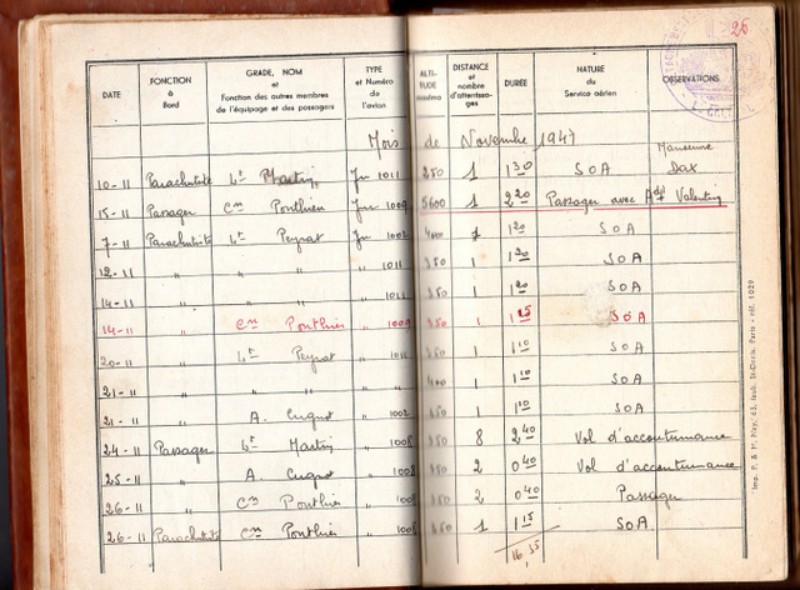 26
DATE
FONCTION
à
Bord
GRADE, NOM
et
Fonction des autres membres
de l'équipage et des passagers
TYPE
et Numéro
de
l'avion
ALTI-
TUDE
maxima
DISTANCE
et
nombre
d'atterrissa-
ges
DURÉE
NATURE
du
Service aérien
OBSERVATIONS
Mois de Novembre 1947
10-11 Parachutiste Lt Martin Ju 1011 250 1 1 30 SOA Manoeuvre Dax
15-11 Passager Cne Ponthier Ju 1009 5600 1 2 20 Passager avec Adjt Valentin
7-11 Parachutiste Lt Peyrat Ju 1002 400 1 1 20 SOA
12-11 " " " " 1011 350 1 1 20 SOA
14-11 " " " " 1011 350 1 1 20 SOA
14-11 " Cne Ponthier " 1009 350 1 1 15 SOA
20-11 " Lt Peyrat " 1011 350 1 1 10 SOA
21-11 " " " " " 400 1 1 10 SOA
21-11 " A. Cugnot " 1002 350 1 1 10 SOA
24-11 Passager Lt Martin " 1008 350 8 2 40 Vol d'accoutumance
25-11 " A. Cugnot " 1008 350 2 0 40 Vol d'accoutumance
26-11 " Cne Ponthier " 1008 350 2 0 40 Passager
26-11 Parachutiste Cne Ponthier " 1008 350 1 1 15 SOA
16,35